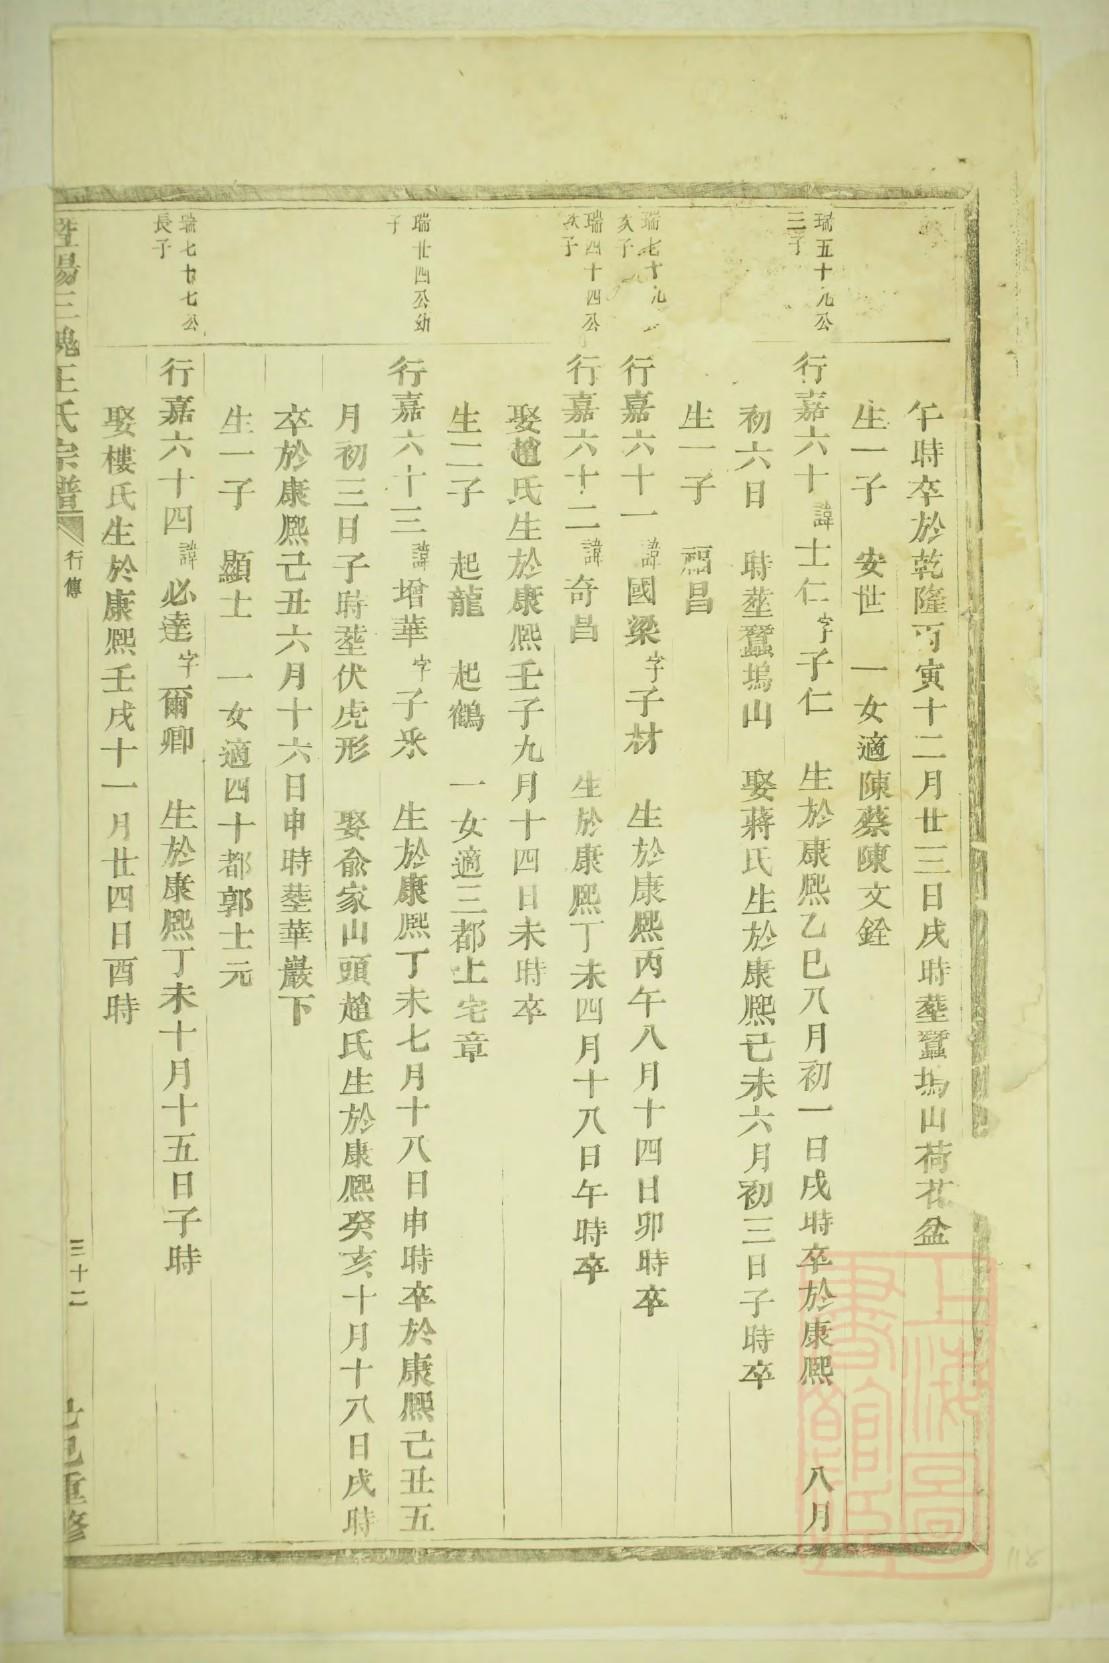 午時卒於乾隆丙寅十二月廿三日戌時塟蠶塢山荷花盆
生一子 安世 一女適陳蔡陳文銓
瑞五十九公
三子
行嘉六十諱士仁字子仁 生於康熙乙巳八月初一日戌時卒於康熙 八月
初六日 時塟蠶塢山 娶蔣氏生於康熙己未六月初三日子時卒
生一子 福昌
瑞七十九
次子
行嘉六十一諱國梁字子材 生於康熙丙午八月十四日卯時卒
瑞四十四公
次子
行嘉六十二諱奇昌 生於康熙丁未四月十八日午時卒
娶趙氏生於康熙壬子九月十四日未時卒
生二子 起龍 起鶴 一女適三都上宅章
瑞廿四公幼
子
行嘉六十三諱增華字子采 生於康熙丁未七月十八日申時卒於康熙己丑五
月初三日子時塟伏虎形 娶俞家山頭趙氏生於康熙癸亥十月十八日戌時
卒於康熙己丑六月十六日申時塟華巖下
生一子 顯士 一女適四十都郭士元
瑞七十七公
長子
行嘉六十四諱必達字爾卿 生於康熙丁未十月十五日子時
娶樓氏生於康熙壬戌十一月廿四日酉時
暨陽三槐王氏宗譜 行傳 三十二 巳重修
上海圖
書館藏